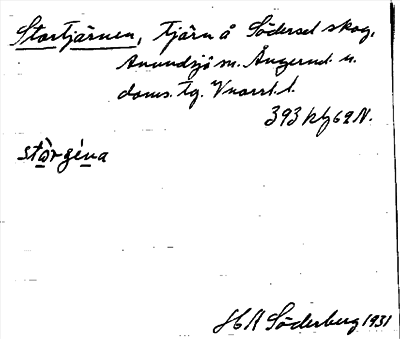 Stortjärnen, tjärn å Södersel skog,
Anundsjö sn. Ångerml. n.
doms. tg. Vnorrl. l.
393 kfg 2 N.
stòrgéna
H A Söderberg 1931